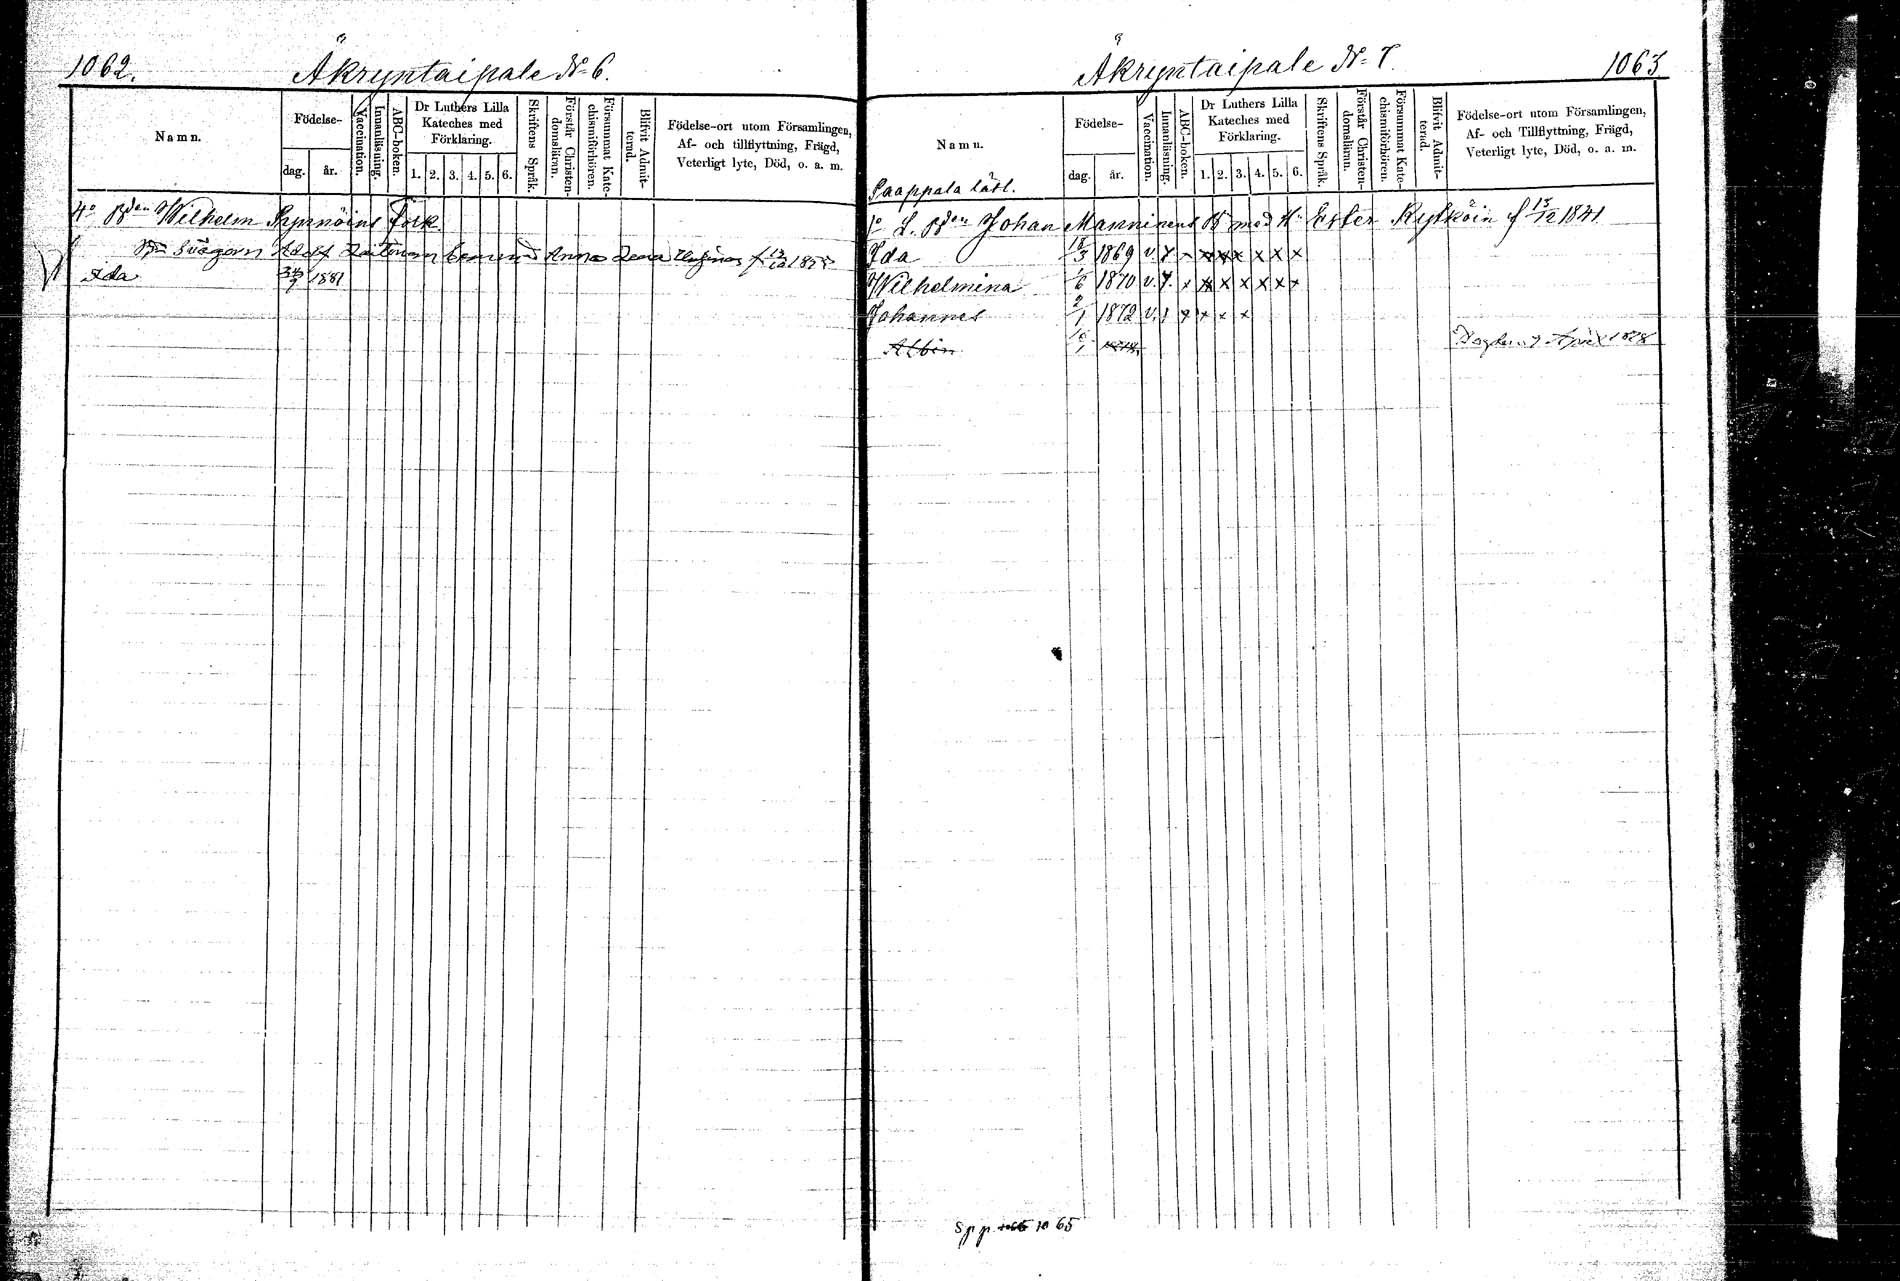 1062.
Åkryntaipale Nº 6.
Namn.
Födelse-
dag.
år.
Vaccination.
Innanläsning.
ABC-boken.
Dr Luthers Lilla
Kateches med
Förklaring.
1. 2. 3. 4. 5. 6.
Skriftens Språk.
Förstår Christen-
domsläran.
Försummat Kate-
chismiförhören.
Blifvit Admit-
terad.
Födelse-ort utom Församlingen,
Af- och tillflyttning, Frägd,
Veterligt lyte, Död, o. a. m.
4º Bden Wilhelm folk
Svågorn Adolf Anna Lena
Ida 1881
Åkryntaipale Nº 7.
1063.
Namn.
Födelse-
dag.
år.
Vaccination.
Innanläsning.
ABC-boken.
Dr Luthers Lilla
Kateches med
Förklaring.
1. 2. 3. 4. 5. 6.
Skriftens Språk.
Förstår Christen-
domsläran.
Försummat Kate-
chismiförhören.
Blifvit Admit-
terad.
Födelse-ort utom Församlingen,
Af- och Tillflyttning, Frägd,
Veterligt lyte, Död, o. a. m.
Paappala lätl.
1º L. Bden Johan Manninens B med H. Ester Rytköin f 15/12 1841
Ida 18/3 1869 v. x x x x x x x
Wilhelmina 1/6 1870 v. x x x x x x x
Johannes 2/1 1872 v. x x x x
Albin 10/1 April 1878
Spp. 1065